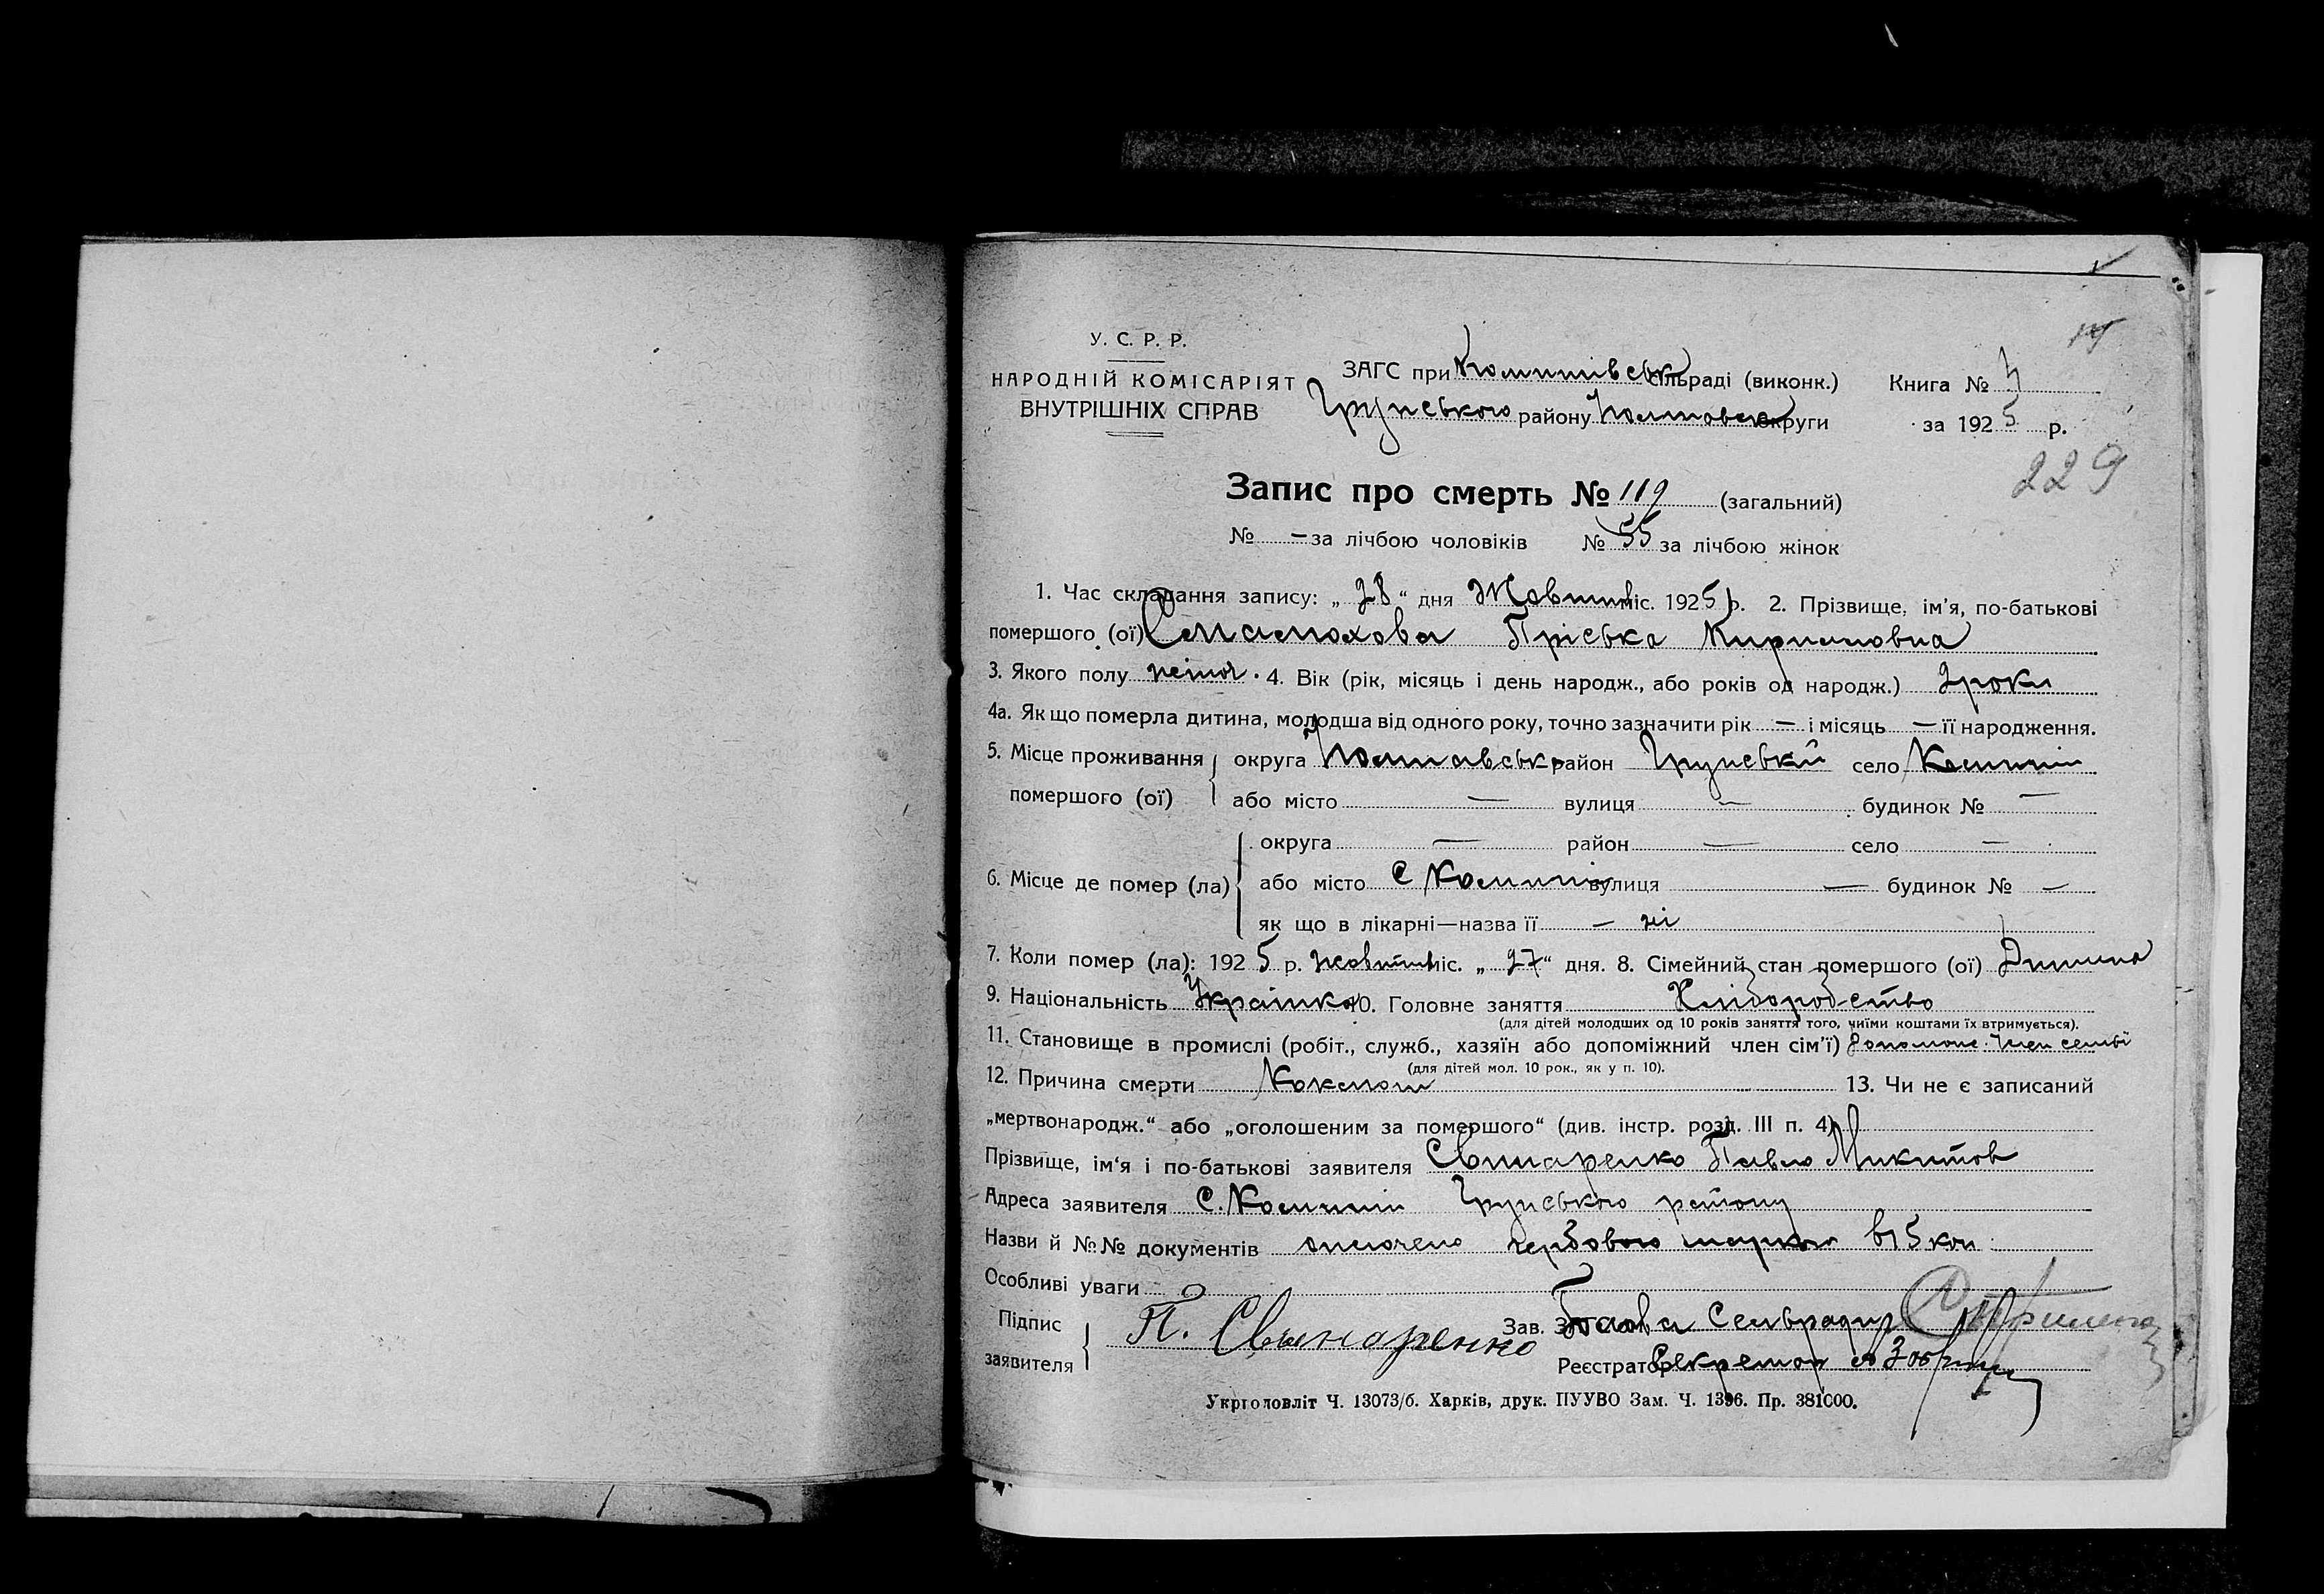 У. С. Р. Р.
НАРОДНІЙ КОМІСАРІЯТ
ВНУТРІШНІХ СПРАВ
ЗАГС при сільраді (виконк.) Книга № 3
Грунського району Полтавськ округи за 1925 р.
229
Запис про смерть № 119 (загальний)
№ — за лічбою чоловіків № 55 за лічбою жінок
1. Час складання запису: „28“ дня Жовтня міс. 1925 р. 2. Прізвище, ім'я, по-батькові
помершого (ої) Пріська Кириловна
3. Якого полу жіноч. 4. Вік (рік, місяць і день народж., або років од народж.) 2 роки
4а. Як що померла дитина, молодша від одного року, точно зазначити рік — і місяць — її народження.
5. Місце проживання помершого (ої) округа Полтавська район Грунський село
або місто — вулиця — будинок № —
6. Місце де помер (ла) округа — район — село —
або місто С вулиця — будинок № —
як що в лікарні—назва її — ні
7. Коли помер (ла): 1925 р. жовтня міс. „27“ дня. 8. Сімейний стан помершого (ої) Дитина
9. Національність Українка 10. Головне заняття Хліборобство
(для дітей молодших од 10 років заняття того, чиїми коштами їх втримується).
11. Становище в промислі (робіт., служб., хазяїн або допоміжний член сім'ї) допомож. член семьї
(для дітей мол. 10 рок., як у п. 10).
12. Причина смерти Коклюш 13. Чи не є записаний
„мертвонародж.“ або „оголошеним за помершого“ (див. інстр. розд. III п. 4)
Прізвище, ім'я і по-батькові заявителя Свинаренко Павло Микитов
Адреса заявителя С. Грунського району
Назви й №№ документів оплочено гербовою маркою в 15 коп.
Особливі уваги
Підпис заявителя П. Свинаренко Зав. Голова Сельради
Реєстратор Секретар
Укрголовліт Ч. 13073/б. Харків, друк. ПУУВО Зам. Ч. 1396. Пр. 381000.